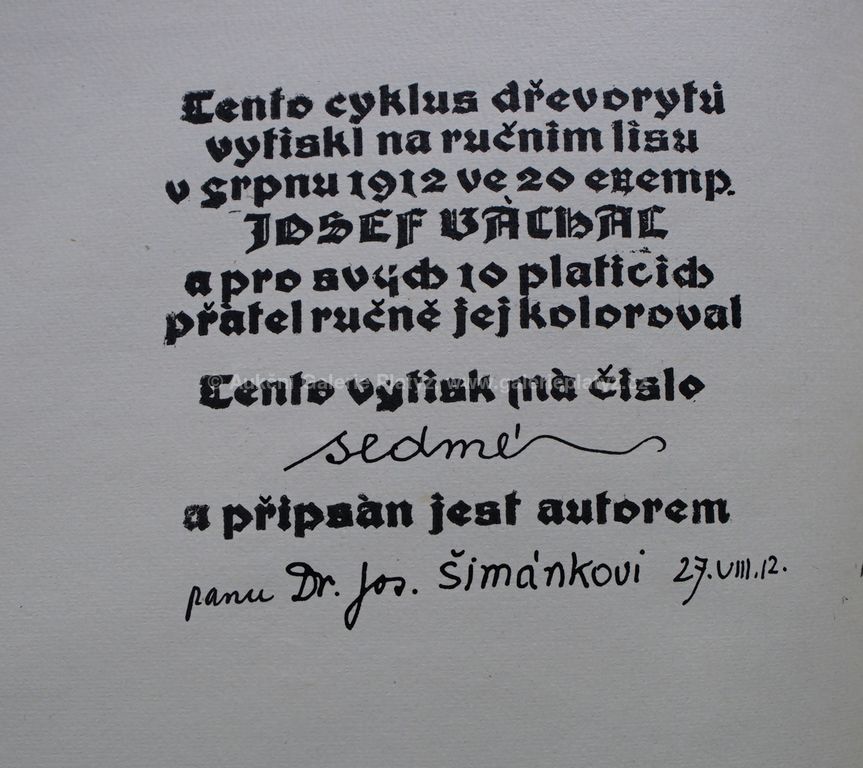 Tento cyklus dřevorytů
vytiskl na ručním lisu
v srpnu 1912 ve 20 exemp.
JOSEF VÀCHAL
a pro svých 10 platicich
přatel ručně jej koloroval
Tento vytisk mà čislo
© Aukční Galerie Platýz, www.galerieplatyz.cz
sedmé
a připsàn jest autorem
panu Dr. Jos. Šimánkovi 27.VIII.12.